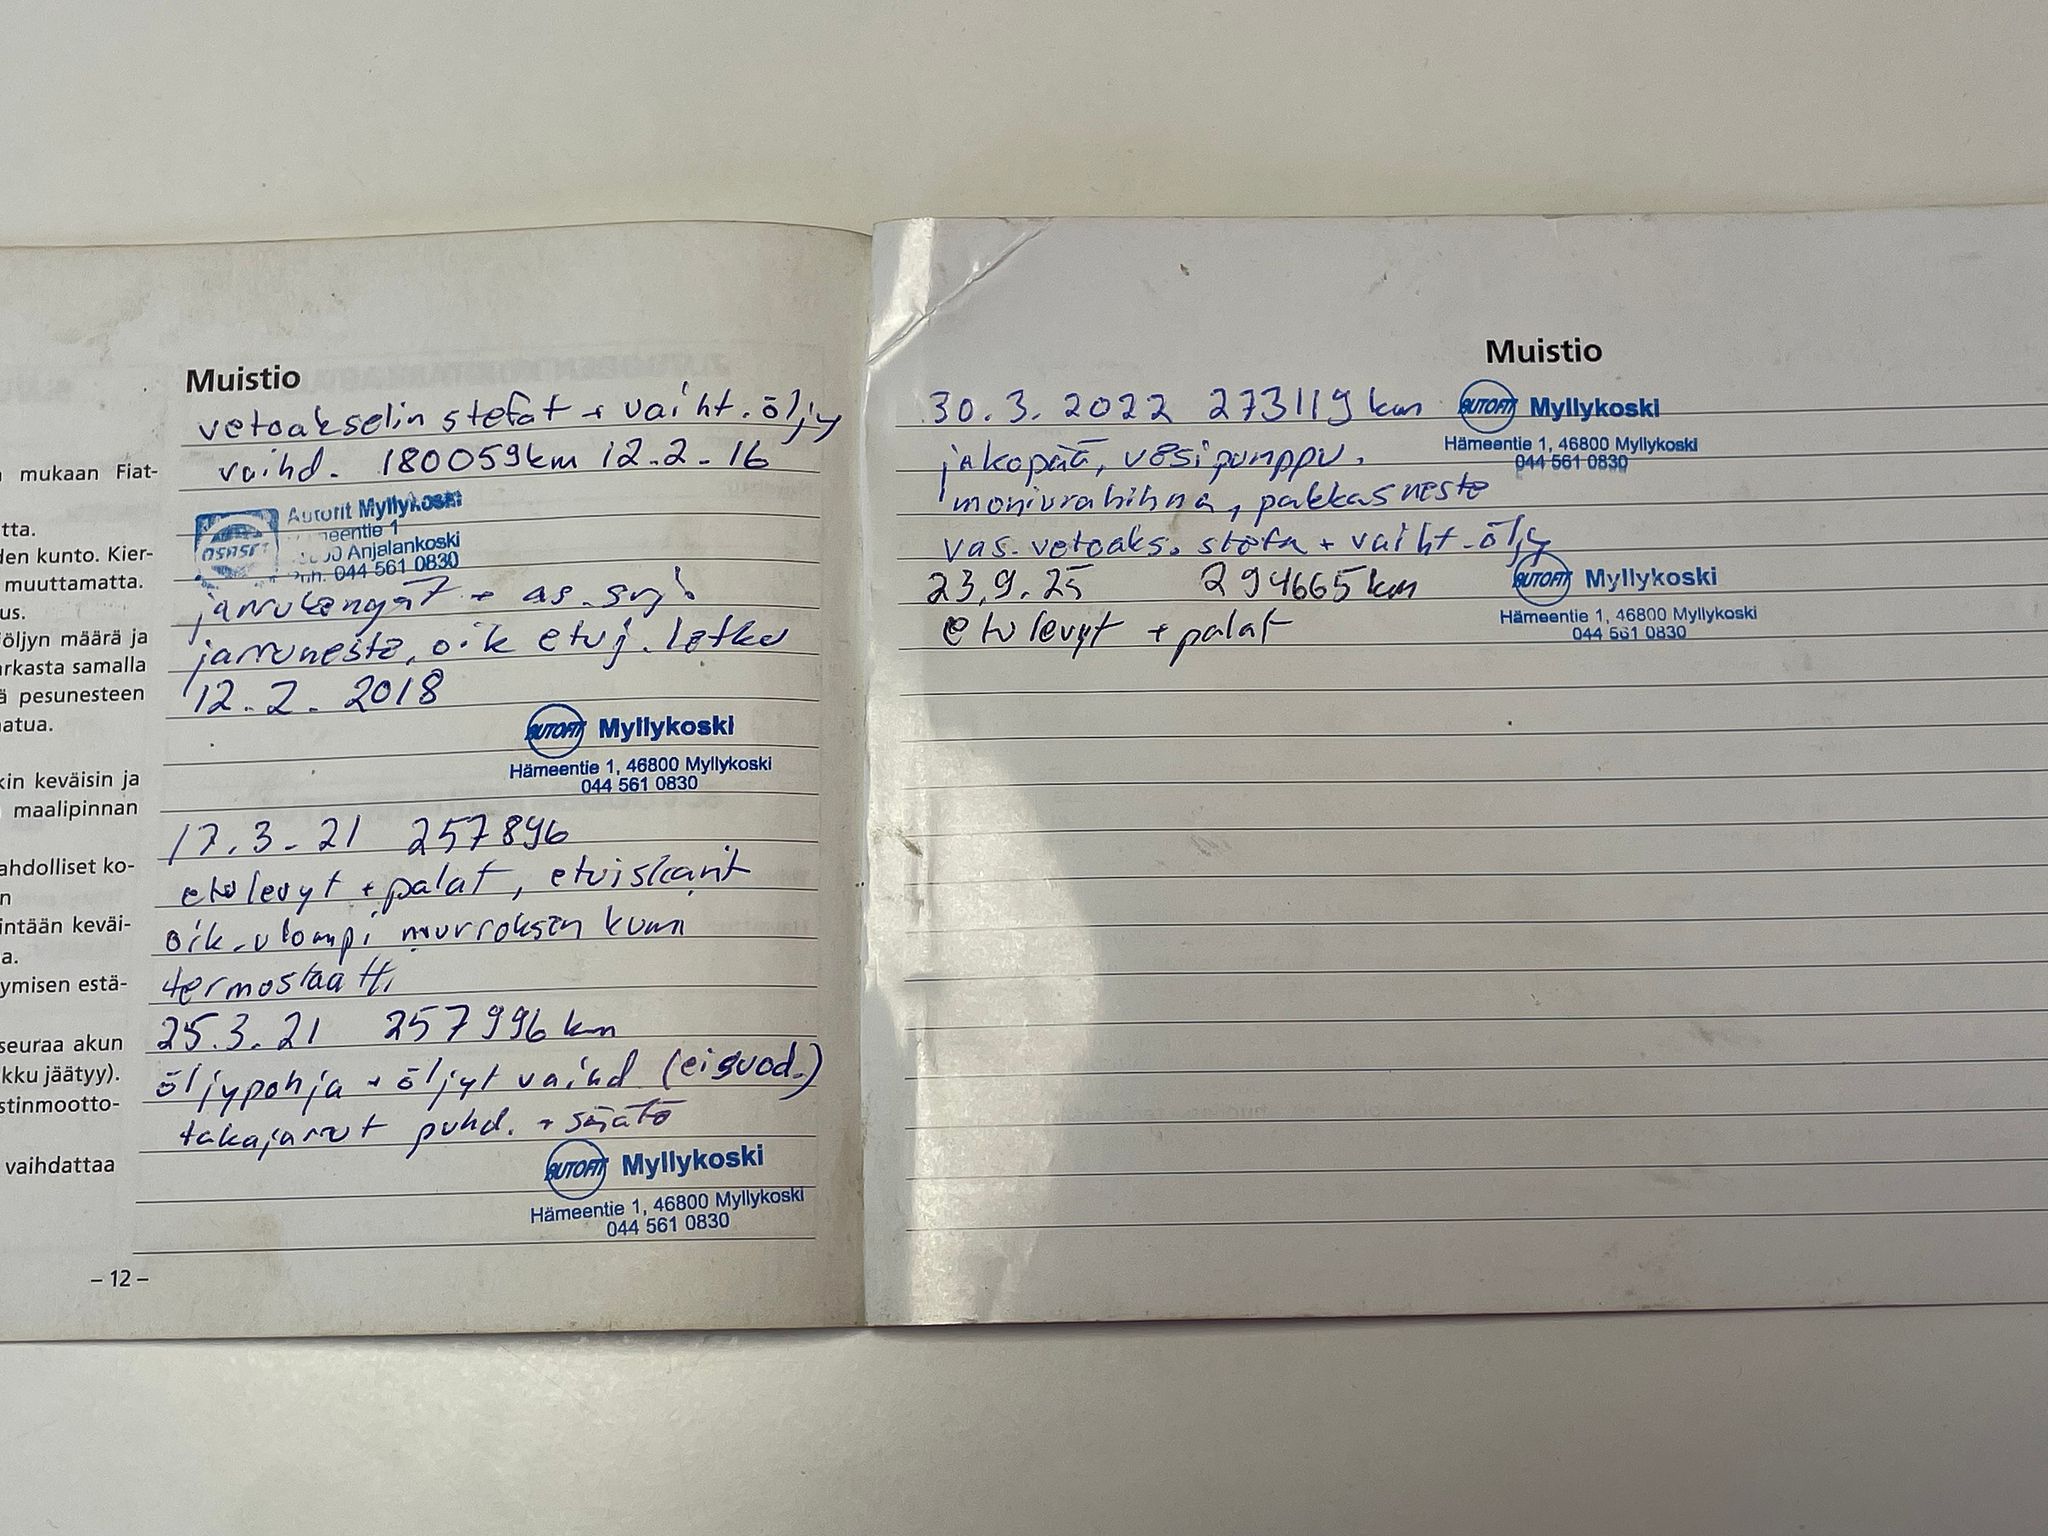 n mukaan Fiat-
tta.
den kunto. Kier-
muuttamatta.
us.
öljyn määrä ja
arkasta samalla
ä pesunesteen
atua.
kin keväisin ja
maalipinnan
ahdolliset ko-
n
intään keväi-
a.
ymisen estä-
seuraa akun
kku jäätyy).
stinmootto-
vaihdattaa
– 12 –
Muistio
vetoakselin stefat + vaiht.öljy
vaihd. 180059km 12.2-16
OSASET
Autofit Myllykoski
meentie 1
Anjalankoski
Puh. 044 561 0830
jarrukengät + as.srj.
jarruneste, oik etuj.letku
12.2.2018
AUTOFIT Myllykoski
Hämeentie 1, 46800 Myllykoski
044 561 0830
17.3-21 257896
etulevyt + palat, etuiskarit
oik.ulompi murroksen kumi
termostaatti
25.3.21 257996 km
öljypohja + öljyt vaihd (ei suod.)
takajarrut puhd. + säätö
AUTOFIT Myllykoski
Hämeentie 1, 46800 Myllykoski
044 561 0830
Muistio
30.3.2022 273119 km
AUTOFIT Myllykoski
Hämeentie 1, 46800 Myllykoski
044 561 0830
jakopää, vesipumppu,
moniurahihna, pakkasneste
vas.vetoaks. stefa + vaiht.öljy
23.9.25 294665 km
AUTOFIT Myllykoski
Hämeentie 1, 46800 Myllykoski
044 561 0830
etulevyt + palat